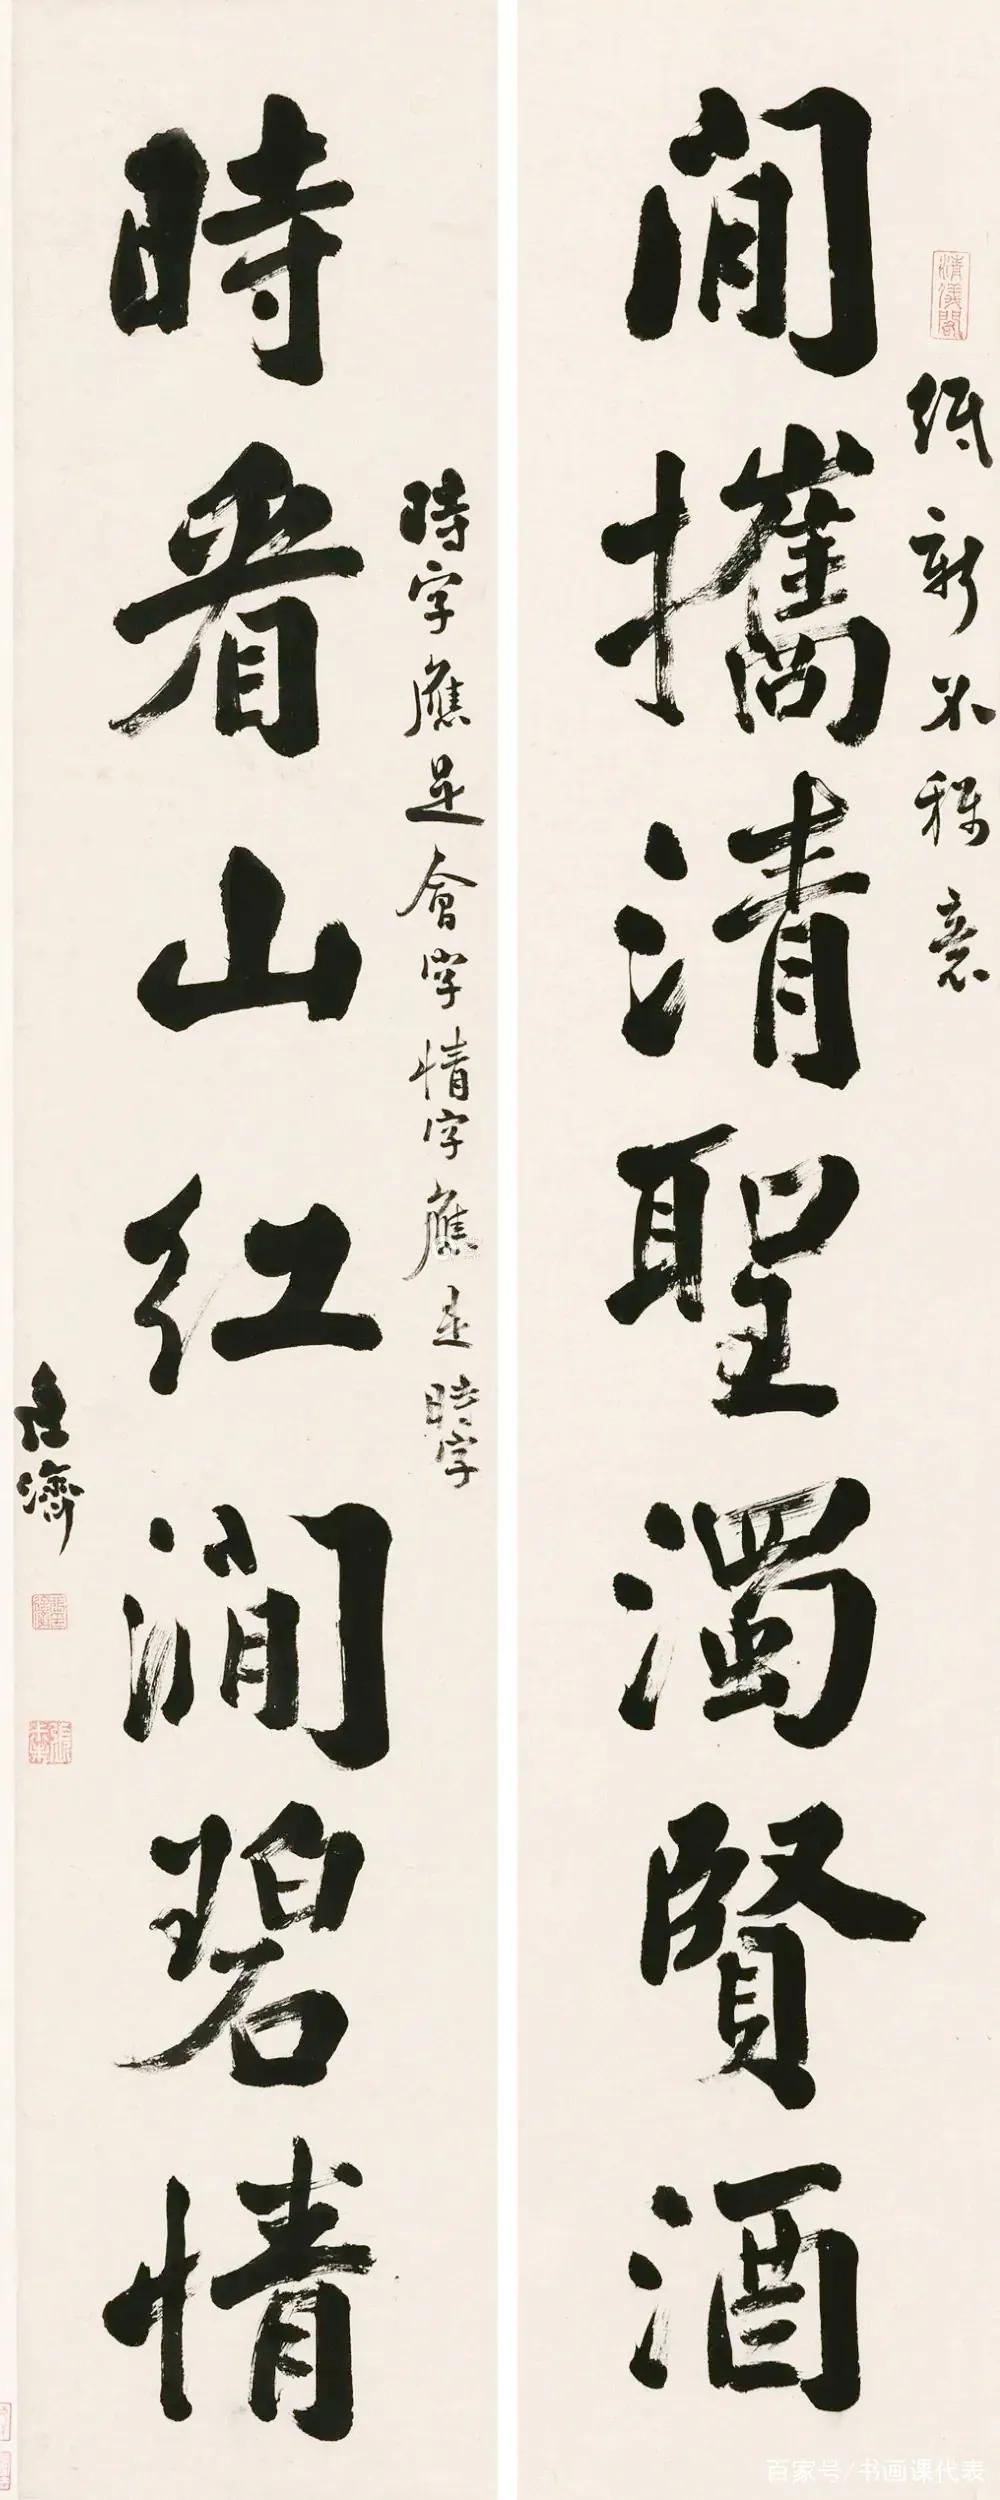 清儀閣
紙新不稱意
閒攜清聖濁賢酒
時字應是會字情字應是時字
時看山紅澗碧情
廷濟
百家号/书画课代表